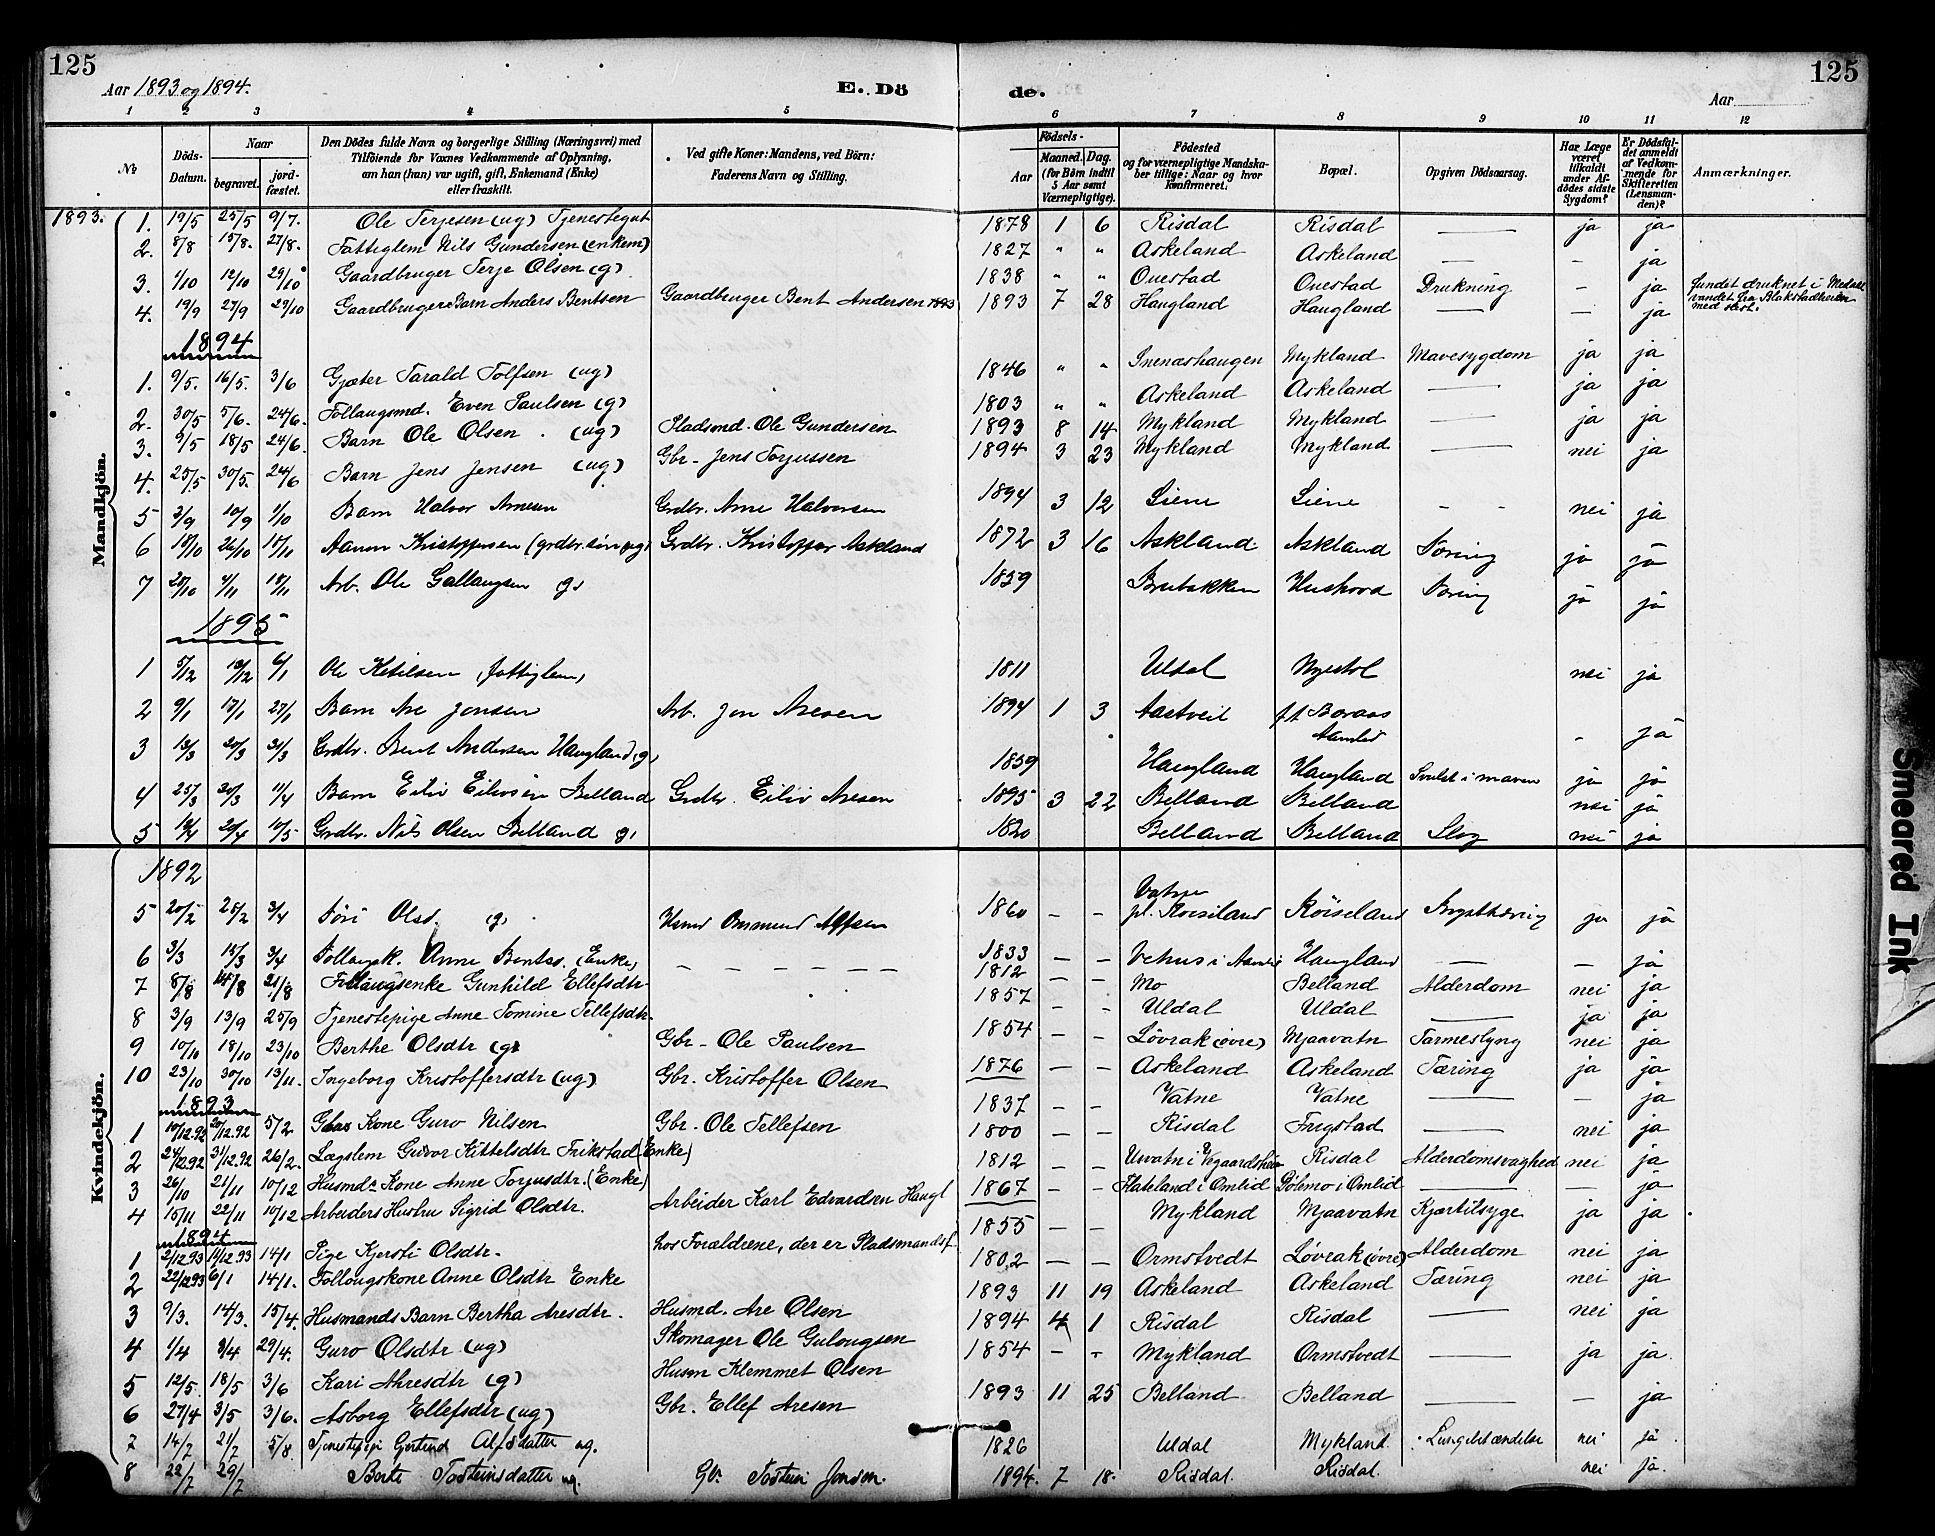 125
125
Aar 1893 og 1894.
E. Dö
de.
Aar
1 2 3 4 5 6 7 8 9 10 11 12
№
Döds-Datum.
Naar
begravet.
jord-fæstet.
Den Dödes fulde Navn og borgerlige Stilling (Næringsvei) med
Tilföiende for Voxnes Vedkommende af Oplysning,
om han (hun) var ugift, gift, Enkemand (Enke)
eller fraskilt.
Ved gifte Koner: Mandens, ved Börn:
Faderens Navn og Stilling.
Födsels-
Aar
Maaned. Dag.
(for Börn indtil
5 Aar samt
Værnepligtige).
Födested
og for værnepligtige Mandska-
ber tillige: Naar og hvor
konfirmeret.
Bopæl.
Opgiven Dödsaarsag.
Har Læge
været
tilkaldt
under Af-
dödes sidste
Sygdom?
Er Dödsfal-
det anmeldt
af Vedkom-
mende for
Skifteretten
(Lensman-
den)?
Anmærkninger.
Mandkjön.
1893.
1. 19/5 25/5 9/7. Ole Terjesen (ug) Tjenestegut 1878 1 6 Risdal Risdal — ja ja
2. 8/8 15/8. 27/8. Fattiglem Nils Gundersen (enkem) 1827 " " Askeland Askeland — - ja
3. 1/10 12/10 29/10 Gaardbruger Terje Olsen (g) 1838 " " Ouestad Ouestad Drukning - ja fundet druknet i
4. 19/9 27/9 29/10 Gaardbrugers Barn Anders Bentsen Gaardbruger Bent Andersen 1893 7 28 Haugland Haugland — - ja
1894
1. 9/5. 16/5. 3/6 Gjæter Tarald Tolfsen (ug) 1846 " " Mykland Mavesygdom ja ja
2. 30/5 5/6. 24/6. Follaugsmd. Even Paulsen (g) 1803 " " Askeland Askeland — ja ja
3. 9/5 18/5 24/6. Barn Ole Olsen (ug) Pladsmd. Ole Gundersen 1893 8 14 Mykland Mykland — ja ja
4. 25/5 30/5. 24/6 Barn Jens Jensen (ug) Gbr - Jens Torjussen 1894 3 23 Mykland Mykland — nei ja
5 3/9 10/9 1/10 Barn Halvor Arnesen Grdbr. Arne Halvorsen 1894 3 12 Liene Liene - - nei ja
6 18/10 26/10 18/11 Aanon Kristoffersen (grdbr. søn ug) Grdbr. Kristoffer Askland 1872 3 16 Askland Askland Tæring ja ja
7 28/10 4/11 18/11 Arb. Ole Gallaugsen g) 1859 Brubakken Hushovd Tæring ja ja
1895
1 5/12 12/12 6/1 Ole Ketilsen (fattiglem) 1811 Uldal Nyestøl nei ja
2 9/1 15/1 27/1 Barn Are Jonsen Arb. Jon Aresen 1894 1 3 Aastveit f.t. Boraas Aamlid - ja
3 13/3 20/3 31/3 Grdbr. Bent Andersen Haugland (g) 1859 Haugland Haugland Svulst i maven ja ja
4 25/3 30/3 11/4 Barn Eiliv Eilivsen Belland Grdbr. Eiliv Aresen 1895 3 22 Belland Belland nei ja
5 12/4 20/4 10/5 Grdbr. Nils Olsen Belland g) 1820 Belland Belland Slag nei ja
Kvindekjön.
1892
5 20/2 28/2 3/4 Siri Olsd. (g) Husmd Ommund Alfsen 1860 - - Vatne pl. Røiseland Røiseland Brystbetændelse ja ja
6 3/3 15/3 3/4 Follaugsk. Anne Bentsd. (Enke) - - - - - - 1833 - - Vehus i Aamlid Haugland — - ja
7 8/8 14/8 21/8 Follaugsenke Gunhild Ellefsdtr 1812 - - Mo Belland Alderdom nei ja
8 3/9 13/9 25/9 Tjenestepige Anne Tomine Tellefsdtr. 1857 - - Uldal Uldal — ja ja
9 10/10 18/10 23/10 Berthe Olsdtr (g) Gbr - Ole Paulsen 1854 - - Løvrak (øvre) Mjaavatn Tarmeslyng nei ja
10 23/10 30/10 13/11. Ingeborg Kristoffersdtr (ug) Gbr. Kristoffer Olsen 1876 - - Askeland Askeland Tæring ja ja
1893
1 10/12.92 20/12.92 5/2 Gbrs Kone Guro Nilsen Gbr. Ole Tellefsen 1837 - - Vatne Vatne — - ja
2 24/12.92 31/12.92 26/2. Lægslem Gunvor Kittelsdtr Frikstad (Enke) 1800 - - Risdal Frigstad — nei ja
3 26/10 21/11 10/12 Husmds Kone Anne Torjusdtr. (Enke) 1812 - - Uvatn i Vegaardsheien Risdal Alderdomsvaghed nei ja
4 15/11 22/11 10/12 Arbeiders Hustru Sigrid Olsdtr. Arbeider Karl Edvardsen Haugl 1867 - - Hateland i Omlid Dølemo i Omlid — - ja
1894
1 2/12.93 14/12.93 14/1 Pige Kjersti Olsdtr. hos Forældrene, der er Pladsmandsf. 1855 - - Mykland Mjaavatn Kjærtilsyge ja ja
2 22/12.93 6/1 14/1. Follougskone Anne Olsdtr Enke 1802 - - Ormstvedt Løvrak (øvre) Alderdom nei ja
3 9/3. 14/3. 15/4. Husmands Barn Bertha Aresdtr. Husmd. Are Olsen 1893 11 19 Askeland Askeland Tæring nei ja
4 1/4 8/4 29/4. Guro Olsdtr (ug) Skomager Ole Gulougsen 1894 4 1 Risdal Risdal — nei ja
5 12/5. 18/5 3/6 Kari Ahresdtr (g) Husm Klemmet Olsen 1854 - - Mykland Ormstvedt — ja ja.
6 27/4 3/5 3/6. Asborg Ellefsdtr (ug) Gbr. Ellef Aresen 1893 11 25 Belland Belland — - ja
7 14/7 21/7 5/8 Tjenestepige Gertrud Alfsdatter ug. 1826 Uldal Mykland. Lungebetændelse nei ja
8 22/7 29/7 Berte Tosteinsdatter ug. Gbr. Tostein Jonsen. 1894. 7 18. Risdal. Risdal. nei ja.
Smeared Ink